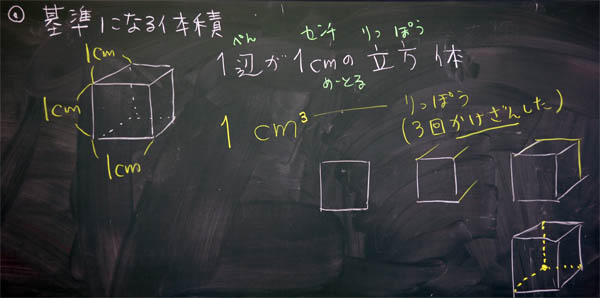 基準になる体積
1cm
1cm
1cm
へん センチ りっぽう
1辺が1cmの立方体
めーとる
1 cm³
りっぽう
(3回かけざんした)